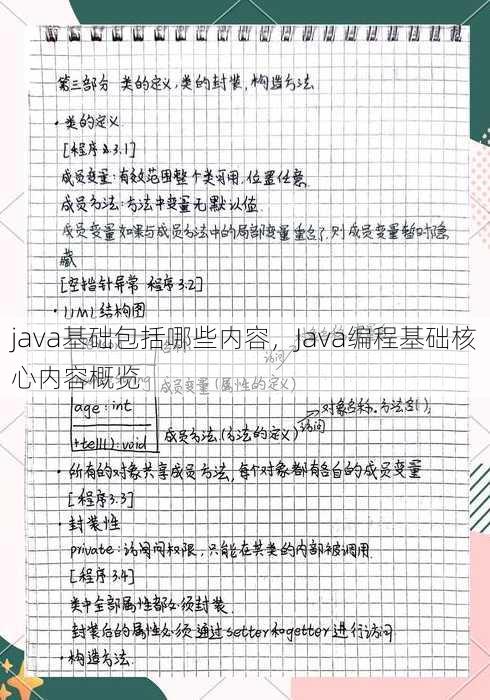 第三部分 类的定义,类的封装,构造方法
·类的定义
[程序 3.1]
成员变量:有效范围整个类可用,位置任意.
成员方法:方法中变量无默认值.
成员变量如果与成员方法中的局部变量重名了,则成员变量暂时隐
藏
[空指针异常 程序3.2]
·UML结构图
java基础包括哪些内容，Java编程基础核
心内容概览
成员变量(属性的定义)
age:int
对象名称.方法名();
+tell():void
成员方法(方法的定义)
访问
·所有的对象共享成员方法,每个对象都有各自的成员变量
[程序3.3]
·封装性
private:访问权限,只能在其类的内部被调用.
[程序3.4]
类中全部属性都必须封装.
封装后的属性必须通过setter和getter进行访问
·构造方法.